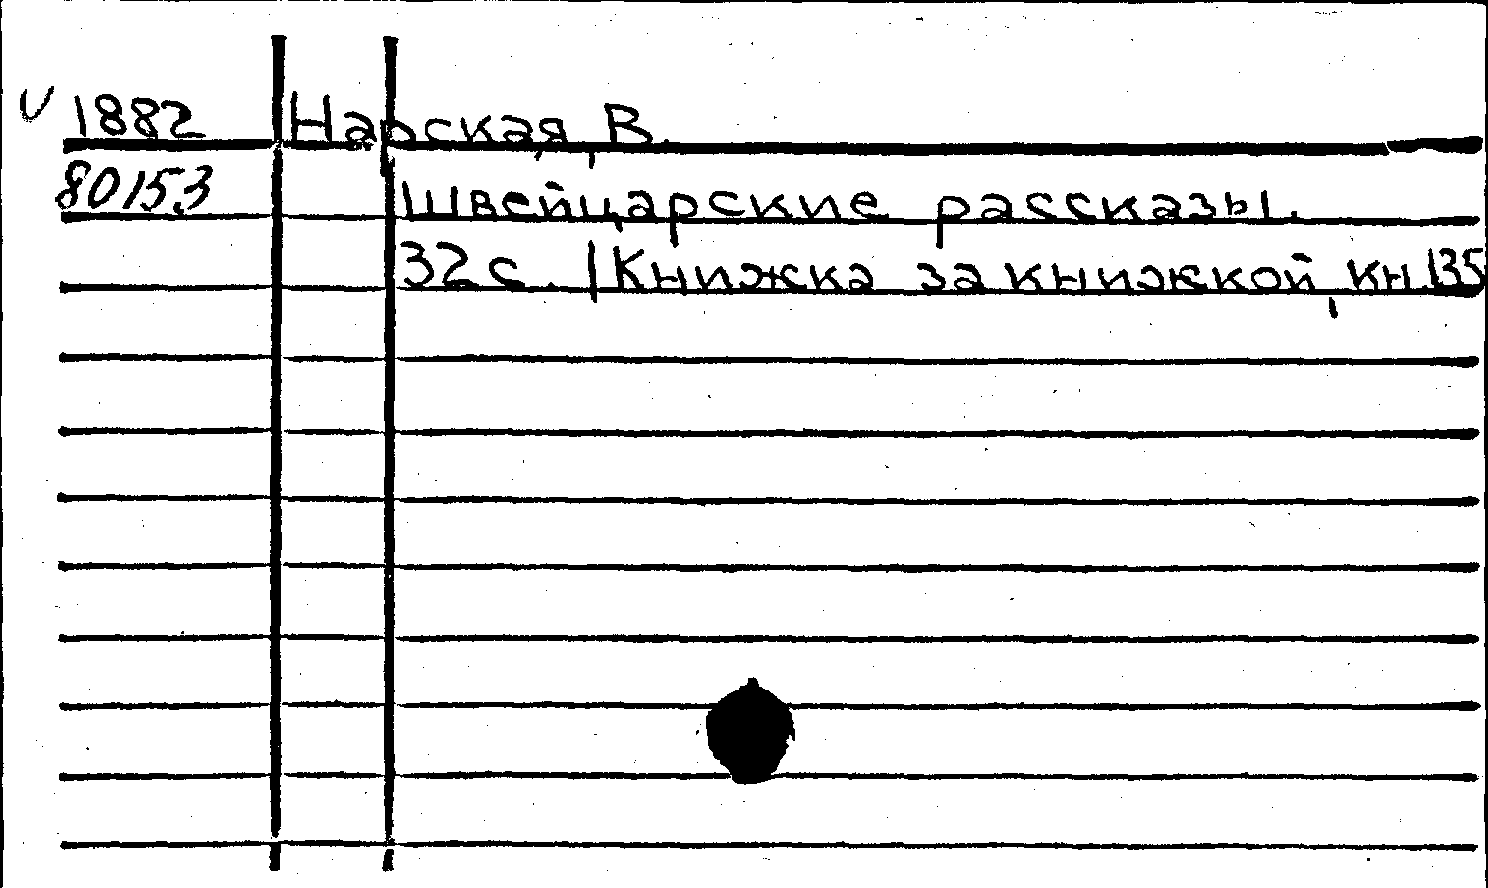 V 1882 Нарская, В.
80153 Швейцарские рассказы.
32 с. /Книжка за книжкой, кн. 135